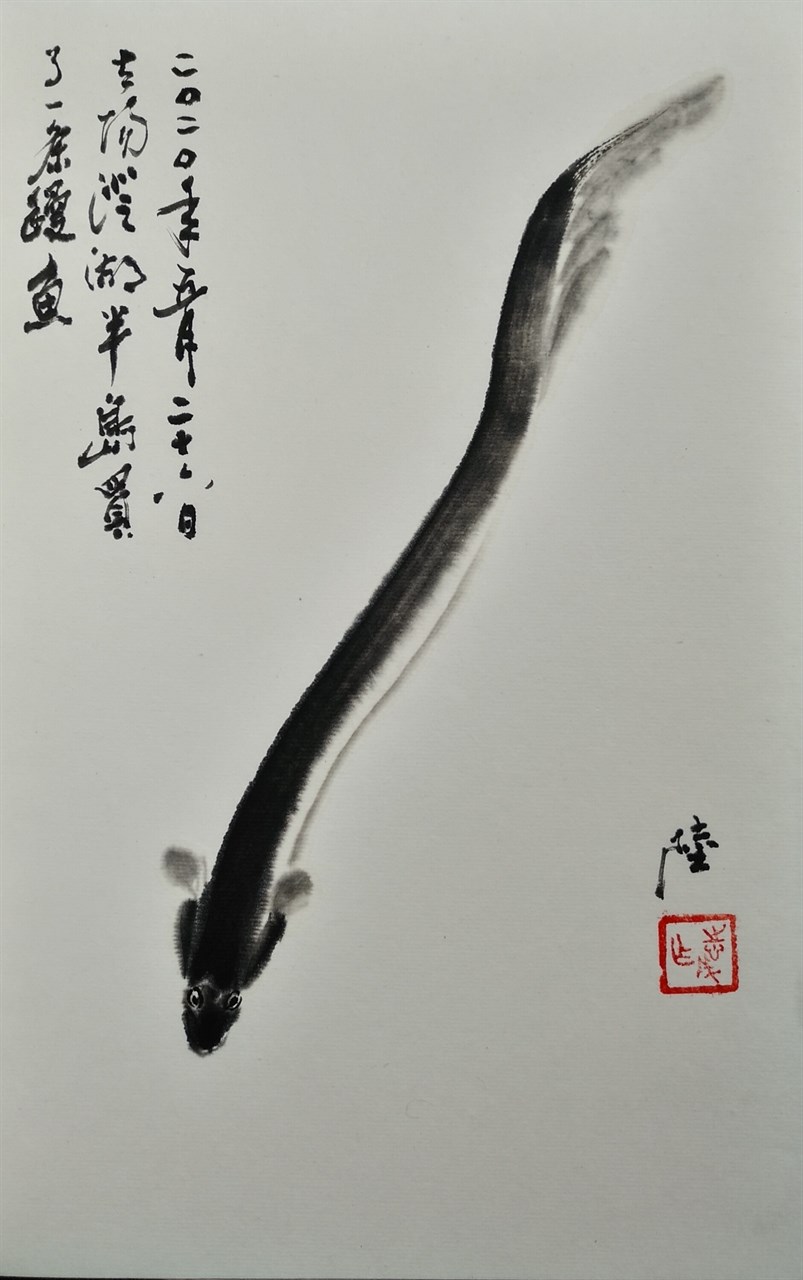 二〇二〇年五月二十六日
去陽澄湖半島買
了一条鰻鱼
陸